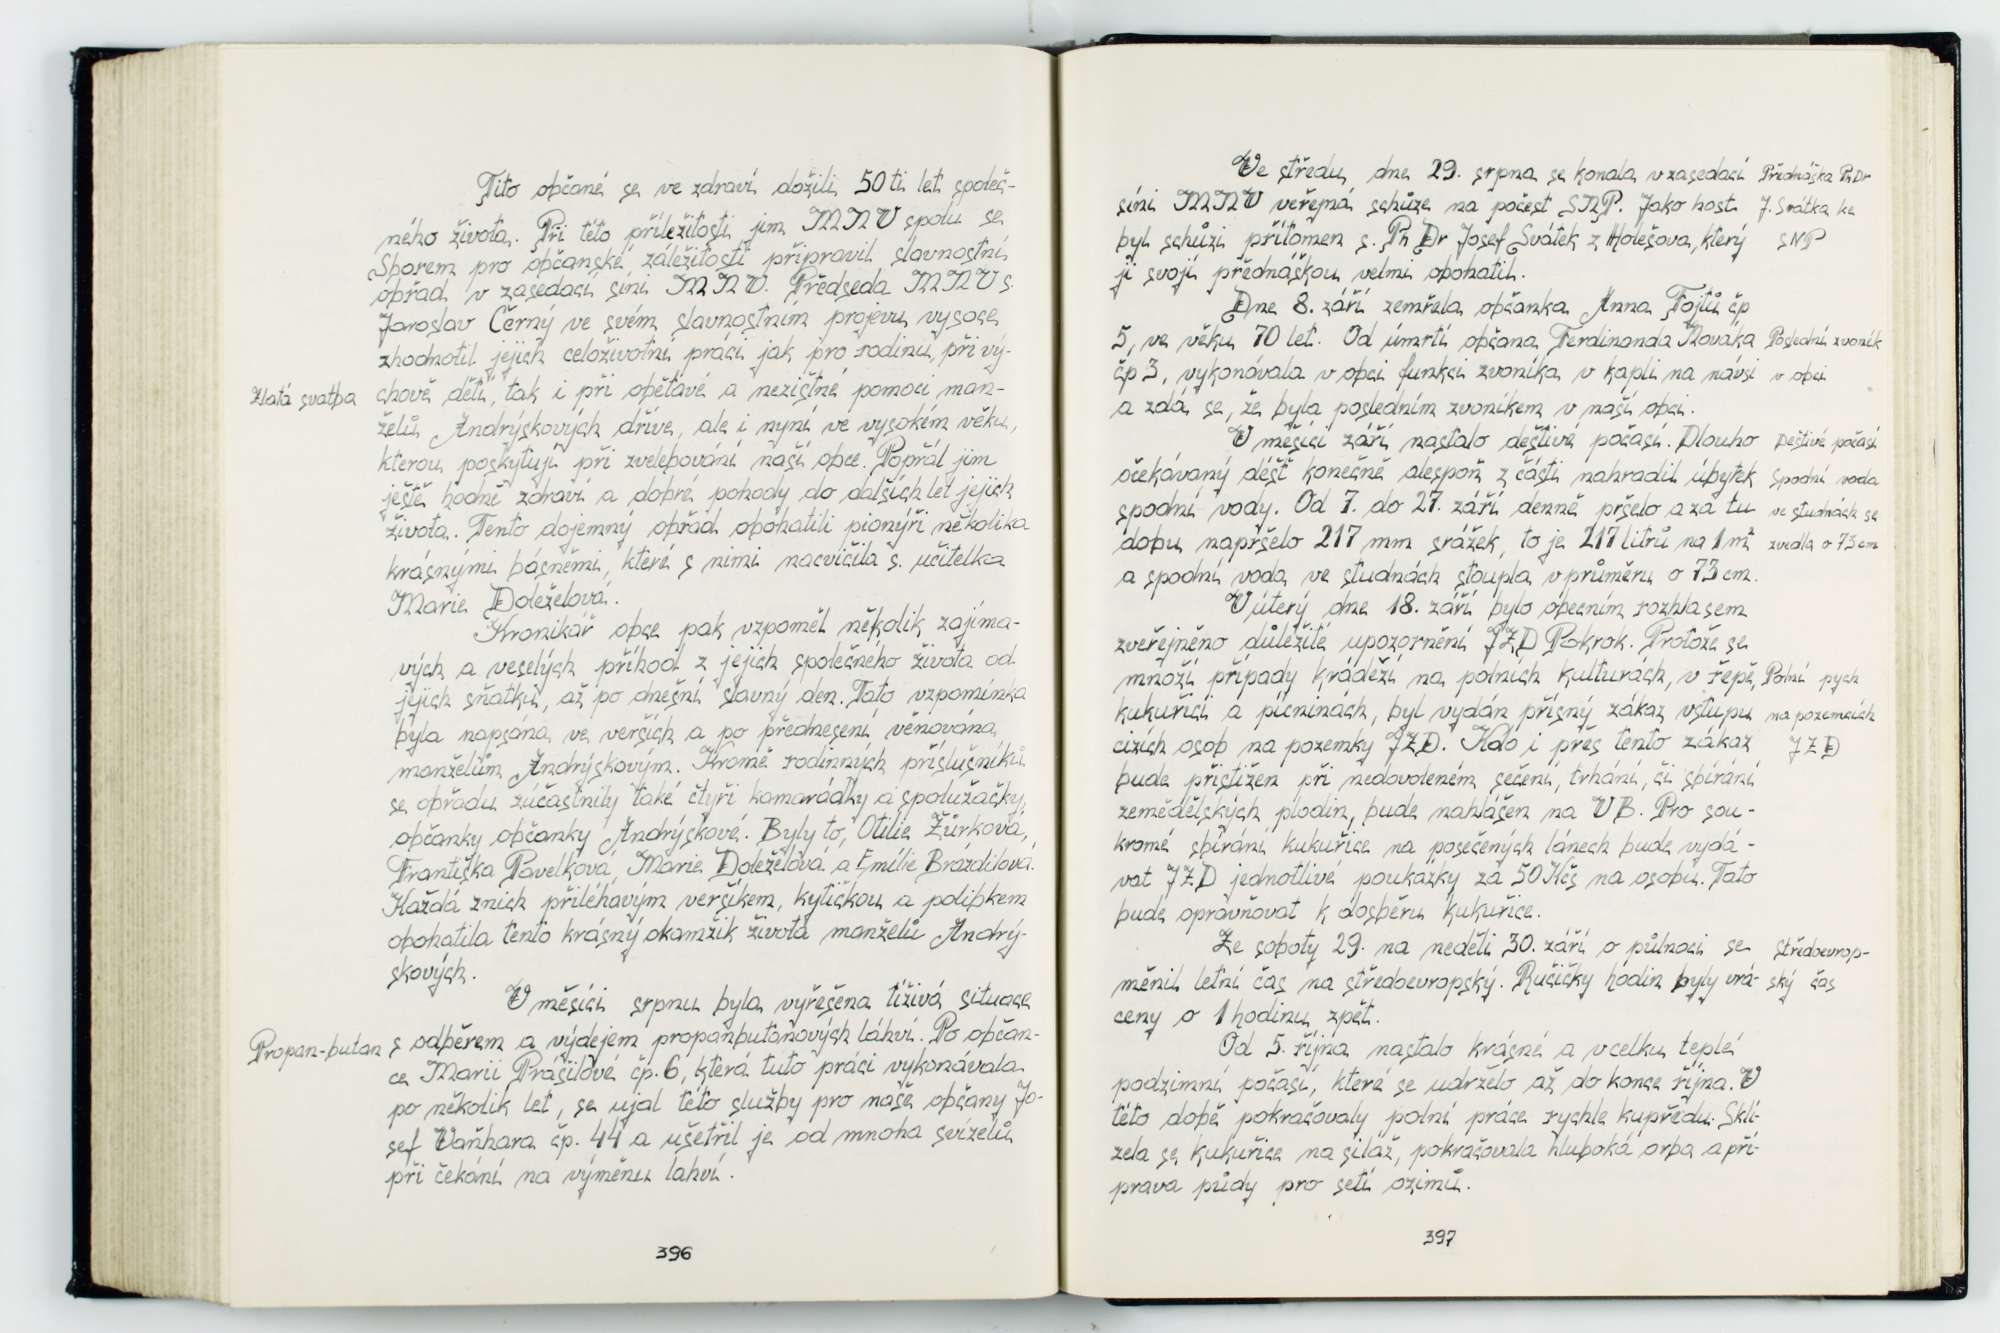 Tito občané se ve zdraví dožili 50ti let společ-
ného života. Při této příležitosti jim MNV spolu se
Sborem pro občanské záležitosti připravil slavnostní
obřad v zasedací síni MNV. Předseda MNV s.
Jaroslav Černý ve svém slavnostním projevu vysoce
zhodnotil jejich celoživotní práci jak pro rodinu, při vý-
Zlatá svatba
chově dětí, tak i při obětavé a nezištné pomoci man-
želů Andrýskových dříve, ale i nyní ve vysokém věku,
kterou poskytují při zvelebování naší obce. Popřál jim
ještě hodně zdraví a dobré pohody do dalších let jejich
života. Tento dojemný obřad obohatili pionýři několika
krásnými básněmi, které s nimi nacvičila s. učitelka
Marie Doleželová.
Kronikář obce pak vzpoměl několik zajíma-
vých a veselých příhod z jejich společného života od
jejich sňatku, až po dnešní slavný den. Tato vzpomínka
byla napsána ve verších a po přednesení věnována
manželům Andrýskovým. Kromě rodinných příslušníků
se obřadu zúčastnily také čtyři kamarádky a spolužačky,
občanky občanky Andrýskové. Byly to, Otilie Žůrková,
Františka Pavelková, Marie Doleželová a Emílie Brázdilová.
Každá znich přiléhavým veršíkem, kytičkou a polibkem
obohatila tento krásný okamžik života manželů Andrý-
skových.
V měsíci srpnu byla vyřešena tíživá situace
Propan-butan
s odběrem a výdejem propanbutanových láhví. Po občan-
ce Marii Prášilové čp. 6, která tuto práci vykonávala
po několik let, se ujal této služby pro naše občany Jo-
sef Vaňhara čp. 44 a ušetřil je od mnoha svízelů
při čekání na výměnu lahví.
396
Ve středu dne 29. srpna se konala v zasedací
síni MNV veřejná schůze na počest SNP. Jako host
byl schůzi přítomen s. Ph Dr Josef Svátek z Holešova, který
ji svojí přednáškou velmi obohatil.
Přednáška PhDr
J. Svátka ke
SNP
Dne 8. září zemřela občanka Anna Fojtů čp
5, ve věku 70 let. Od úmrtí občana Ferdinanda Nováka
čp 3, vykonávala v obci funkci zvoníka v kapli na návsi
a zdá se, že byla posledním zvoníkem v naší obci.
Poslední zvoník
v obci
V měsíci září nastalo deštivé počasí. Dlouho
očekávaný déšť konečně alespoň z části nahradil úbytek
spodní vody. Od 7. do 27. září denně pršelo a za tu
dobu napršelo 217 mm srážek, to je 217 litrů na 1 m²
a spodní voda ve studnách stoupla v průměru o 73 cm.
Deštivé počasí
Spodní voda
ve studnách se
zvedla o 73 cm
V úterý dne 18. září bylo obecním rozhlasem
zveřejněno důležité upozornění JZD Pokrok. Protože se
množí případy krádeží na polních kulturách, v řepě,
kukuřici a pícninách, byl vydán přísný zákaz vstupu
cizích osob na pozemky JZD. Kdo i přes tento zákaz
bude přistižen při nedovoleném sečení, trhání, či sbírání
zemědělských plodin, bude nahlášen na VB. Pro sou-
kromé sbírání kukuřice na posečených lánech bude vydá-
vat JZD jednotlivé poukázky za 50 Kčs na osobu. Tato
bude opravňovat k dosběru kukuřice.
Polní pych
na pozemcích
JZD
Ze soboty 29. na neděli 30. září o půlnoci se
měnil letní čas na středoevropský. Ručičky hodin byly vrá-
ceny o 1 hodinu zpět.
Středoevrop-
ský čas
Od 5. října nastalo krásné a vcelku teplé
podzimní počasí, které se udrželo až do konce října. V
této době pokračovaly polní práce rychle kupředu. Skli-
zela se kukuřice na siláž, pokračovala hluboká orba a pří-
prava půdy pro setí ozimů.
397